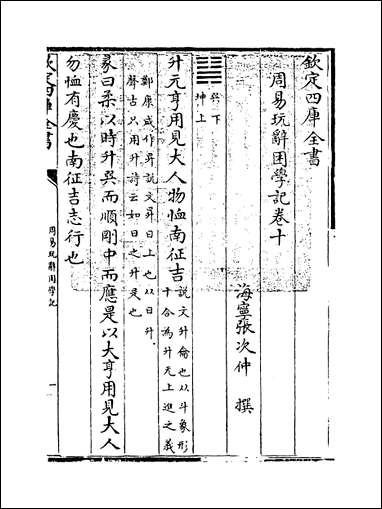 欽定四庫全書
周易玩辭困學記卷十
海寧張次仲 撰
巽下
坤上
升元亨用見大人勿恤南征吉
說文升龠也从斗象形
十合為升元上進之義
鄭康成作昇說文昇日上也从日升
聲古只用升詩云如日之升是也
彖曰柔以時升巽而順剛中而應是以大亨用見大人
勿恤有慶也南征吉志行也
欽定四庫全書
周易玩辭困學記
一